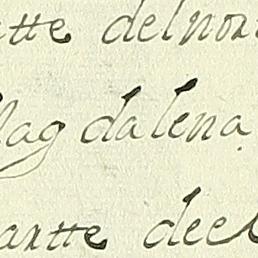 tte delnor
Magdalena
artte dees